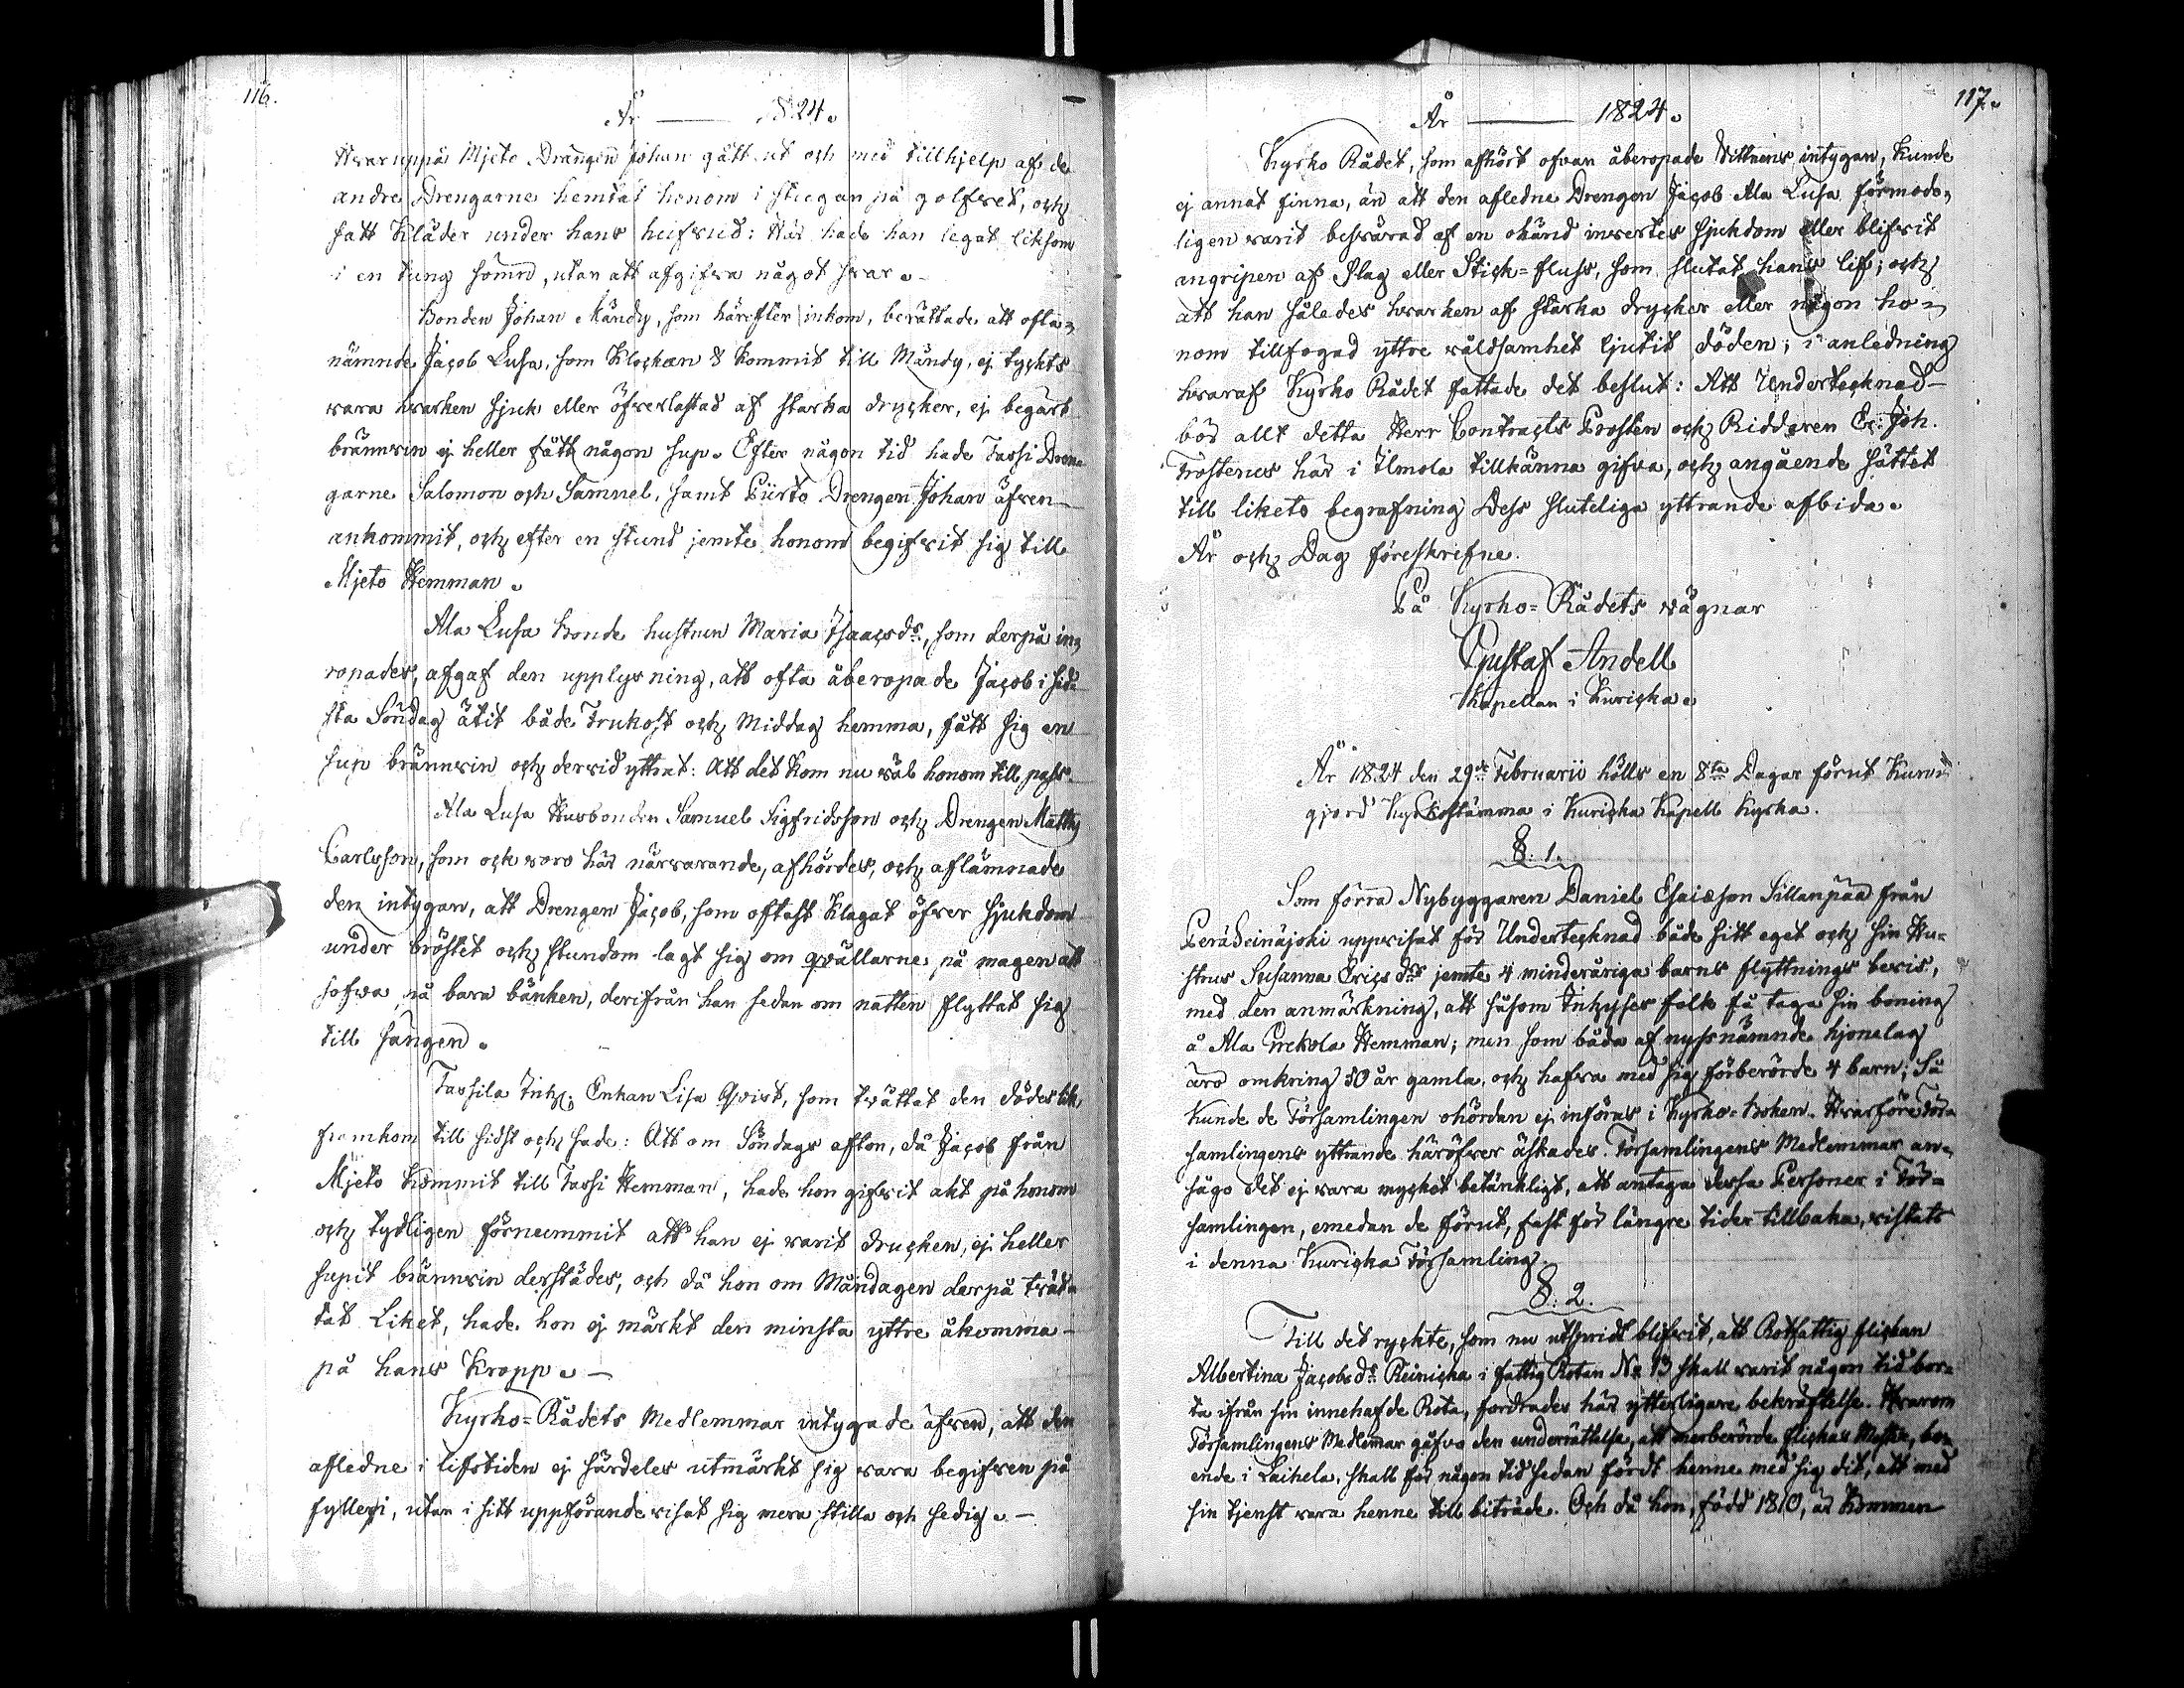 116.
År 1824.
Hvaruppå Mjeto Drängen Johan gått ut och med tillhjelp af de
andre Drengarne hemtat honom i stugan på golfvet, och
satt Kläder under hans hufvud: Här hade han legat liksom
i en tung sömn, utan att afgifva något svar.
Bonden Johan Mändy, som härefter inkom, berättade att ofta-
nämnde Jacob Lusa, som Klockan 8 kommit till Mändy, ej tyckts
vara hvarken sjuk eller öfverlastad af starka drycker, ej begärt
brännvin ej heller fått någon sup. Efter någon tid hade Tassi Dren-
garne Salomon och Samuel, samt Piirto Drengen Johan äfven
ankommit, och efter en stund jemte honom begifvit sig till
Mjeto Hemman.
Ala Lusa Bonde hustrun Maria Isaacsdr., som derpå in-
ropades, afgaf den upplysning, att ofta åberopade Jacob i sid-
sta Söndag ätit både Frukost och Middag hemma, fått sig en
sup brännvin och dervid yttrat: Att det kom nu väl honom till pass.
Ala Lusa Husbonden Samuel Sigfridsson och Drengen Matts
Carlsson, som ock voro här närvarande, afhördes, och aflämnade
den intygan, att Drengen Jacob, som oftast klagat öfver sjukdom
under bröstet och stundom lagt sig om qvällarne på magen att
sofva på bara bänken, derifrån han sedan om natten flyttat sig
till sängen.
Tassila Inh: Enkan Lisa Qvist, som tvättat den dödes lik,
framkom till sidst och sade: Att om Söndags afton, då Jacob från
Mjeto kommit till Tassi Hemman, hade hon gifvit akt på honom
och tydligen förnummit att han ej varit drucken, ej heller
supit brännvin derstädes, och då hon om Måndagen derpå tvät-
tat Liket, hade hon ej märkt den minsta yttre åkomma
på hans Kropp.
Kyrko-Rådets Medlemmar intygade äfven, att den
afledne i lifstiden ej särdeles utmärkt sig vara begifven på
fylleri, utan i sitt uppförande visat sig mera stilla och sedig.
117.
År 1824.
Kyrko Rådet, som afhört ofvan åberopade Vittnens intygan, kunde
ej annat finna, än att den afledne Drengen Jacob Ala Lusa förmode-
ligen varit besvärad af en okänd invertes sjukdom eller blifvit
angripen af Slag eller Stick-fluss, som slutat hans lif; och
att han således hvarken af starka drycker eller någon ho-
nom tillfogad yttre våldsamhet ljutit döden; i anledning
hvaraf Kyrko Rådet fattade det beslut: Att Undertecknad
bör allt detta Herr Contracts Prosten och Riddaren Er: Joh.
Frosterus här i Ilmola tillkänna gifva, och angående sättet
till likets begrafning Dess sluteliga yttrande afbida.
År och Dag föreskrifne.
På Kyrko-Rådets vägnar
Gustaf Andell
Kapellan i Kuricka.
År 1824 den 29de Februarii hölls en 8ta Dagar förut Kun-
gjord Kyrkostämma i Kuricka Kapell Kyrka.
§. 1.
Som förra Nybyggaren Daniel Esaiæson Sillanpää från
Peräseinäjoki uppvisat för Undertecknad både sitt eget och sin Hu-
strus Susanna Ericsdrs jemte 4 minderåriga barns flyttnings bevis,
med den anmärkning, att såsom Inhyses folk få taga sin boning
å Ala Prekola Hemman; men som båda af nyssnämnde hjonelag
äro omkring 50 år gamla, och hafva med sig förberörde 4 barn; Så
kunde de Församlingen ohörden ej införas i Kyrko-boken. Hvarföre För-
samlingens yttrande häröfver äskades. Församlingens Medlemmar an-
sågo det ej vara mycket betänkligt, att antaga dessa Personer i För-
samlingen, emedan de förut, fast för längre tider tillbaka, vistats
i denna Kuricka Församling.
§. 2.
Till det ryckte, som nu utspridt blifvit, att Rotfattig flickan
Albertina Jacobsdr Reinicka i fattig Rotan No 13 skall varit någon tid bor-
ta ifrån sin innehafde Rota, fordrades här ytterligare bekräftelse. Hvarom
Församlingens Medlemmar gåfvo den underrättelse, att merberörde flickas Moster, bo-
ende i Laihela, skall för någon tid sedan fördt henne med sig dit, att med
sin tjenst vara henne till biträde. Och då hon, född 1810, är kommen